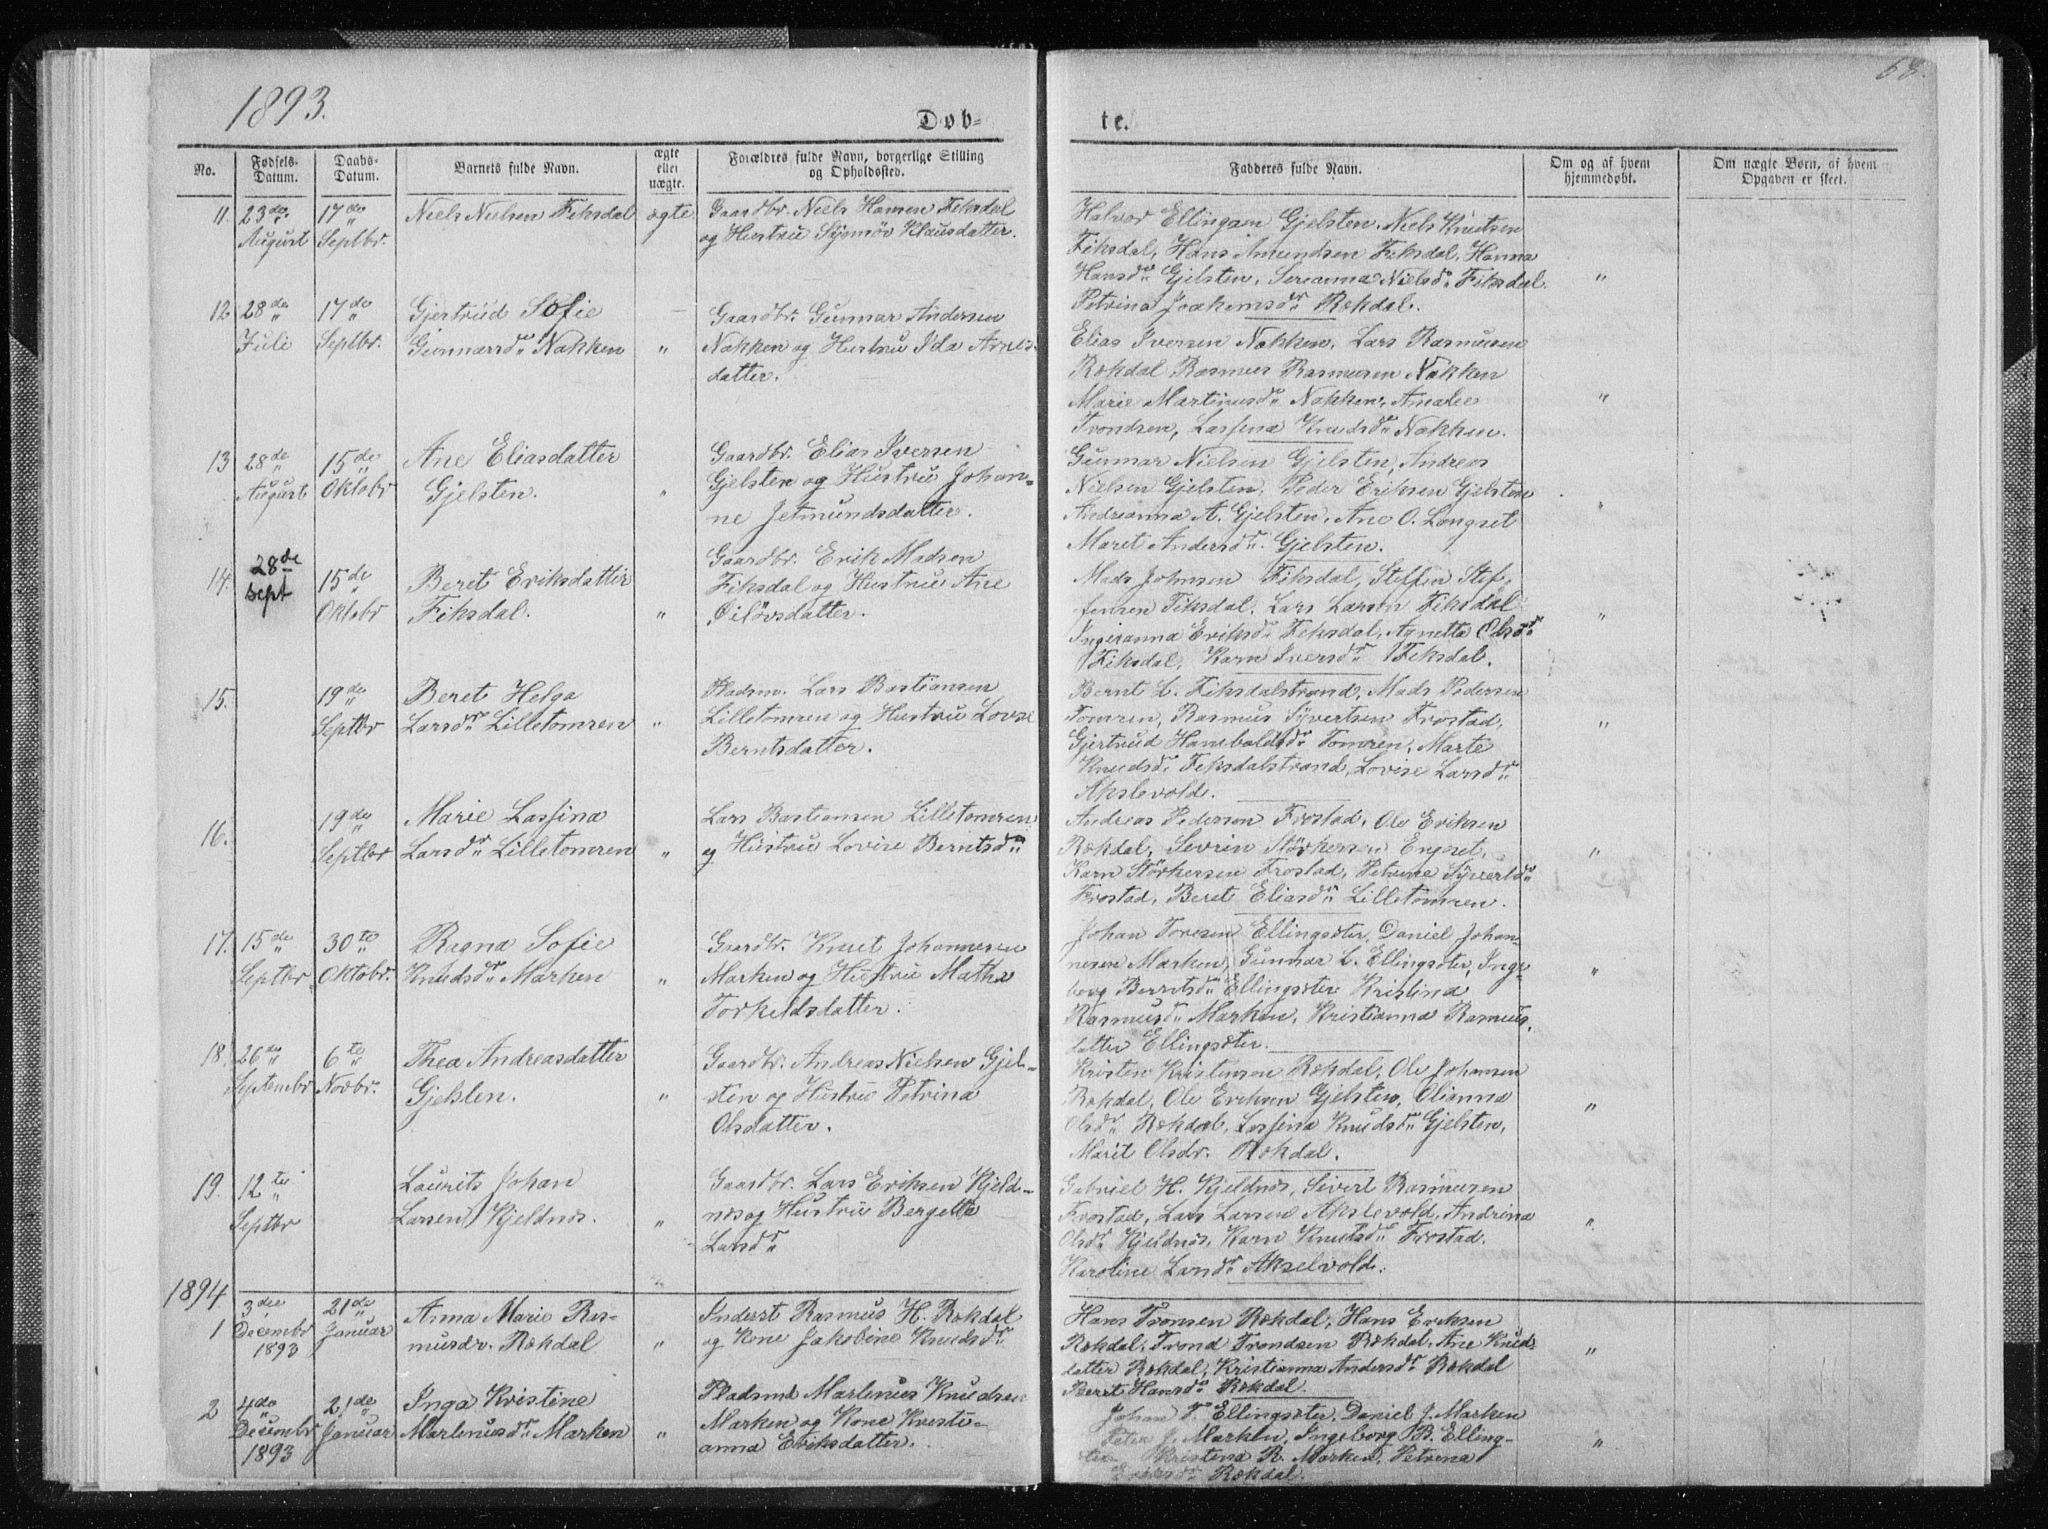 1893.
68.
Døb-
te.
No.
Fødsels-
Datum.
Daabs-
Datum.
Barnets fulde Navn.
ægte
eller
uægte.
Forældres fulde Navn, borgerlige Stilling
og Opholdssted.
Fadderes fulde Navn.
Om og af hvem
hjemmedøbt.
Om uægte Børn, af hvem
Opgaven er skeet.
11. 23de August 17de Septbr. Niels Nielsen Fiksdal ægte
Gaardbr. Niels Hansen Fiksdal
og Hustru Synnøv Klausdatter.
Halvor Ellingsen Gjelsten, Niels Knutsen
Fiksdal, Hans Amundsen Fiksdal, Hanna
Hansdr Gjelsten, Serianna Nielsdr Fiksdal.
Petrina Joakimsdr Rekdal.
12 28de Juli 17de Septbr. Gjertrud Sofie
Gunnarsdr Nakken "
Gaardbr. Gunnar Andersen
Nakken og Hustru Ida Arnes-
datter.
Elias Iversen Nakken, Lars Rasmusen
Rekdal Rasmus Rasmusen Nakken
Marie Martinusdr Nakken, Amalie
Trondsen, Lassina Knudsdr Nakken.
13 28de August 15de Oktobr Ane Eliasdatter
Gjelsten. "
Gaardbr. Elias Iversen
Gjelsten og Hustru Johan-
ne Jetmundsdatter.
Gunnar Nielsen Gjelsten, Andreas
Nielsen Gjelsten, Peder Eriksen Gjelsten
Andrianna A. Gjelsten, Ane O. Langset
Maret Andersdr. Gjelsten.
14. 28de Sept 15de Oktobr Beret Eriksdatter
Fiksdal. "
Gaardbr. Erik Madsen
Fiksdal og Hustru Ane
Oilövsdatter.
Mads Johnsen Fiksdal, Steffen Stef-
fensen Fiksdal, Lars Larsen Fiksdal
Ingeranna Eriksdr Fiksdal, Agnetta Olsdr
Fiksdal, Karn Iversdr Fiksdal.
15. 19de Septbr Beret Helga
Larsdr Lilletomren "
Pladsm. Lars Bastiansen
Lilletomren og Hustru Lovise
Berntsdatter.
Bernt L. Fiksdalstrand, Mads Pedersen
Tomren, Rasmus Syvertsen Frostad,
Gjertrud Hansbaldsdr Tomren, Marte
Knudsdr Fiksdalstrand, Lovise Larsdr
Akslevolde.
16. 19de Septbr Marie Lassina
Larsdr Lilletomren "
Lars Bastiansen Lilletomren
og Hustru Lovise Berntsdr
Andreas Pederson Frostad, Ole Eriksen
Rekdal, Sevrin Störkersen Engset,
Karn Störkersen Frostad, Petrine Syvertsdr
Frostad, Beret Eliasdr Lilletomren.
17. 15de Septbr 30te Oktobr. Ragna Sofie
Knudsdr Marken "
Gaardbr. Knut Johannesen
Marken og Hustru Matha
Torkeldsdatter.
Johan Toresen Ellingsöter, Daniel Johan-
nesen Marken, Gunnar L. Ellingsöter, Inge-
borg Berntsdr Ellingsöter Kristina
Rasmusdr Marken, Kristianna Rasmus-
datter Ellingsöter.
18. 26de Septembr 6te Novbr. Thea Andreasdatter
Gjelsten. "
Gaardbr. Andreas Nielsen Gjel-
sten og Hustru Petrina
Olsdatter.
Kristen Kristensen Rekdal, Ole Johansen
Rekdal, Ole Eriksen Gjelsten, Olianna
Olsdr Rekdal, Lassina Knudsdr Gjelsten,
Marit Olsdr. Rekdal.
19. 12te Septbr Laurits Johan
Larsen Kjeldnes. "
Gaardbr. Lars Eriksen Kjeld-
nes og Hustru Bergetta
Larsdr
Gabriel H. Kjeldnes, Sivert Rasmusen
Frostad, Lars Larsen Akslevold, Andrina
Olsdr Kjeldnes, Karn Knutsdr Frostad.
Karoline Larsdr Akselvold.
1894
1 3die Decembr 1893 21de Januar Anna Marie Ras-
musdr. Rekdal "
Inderst Rasmus H. Rekdal
og Kone Jakobine Knudsdr
Hans Tronsen Rekdal, Hans Eriksen
Rekdal, Trond Trondsen Rekdal, Ane Knuds-
datter Rekdal, Kristianna Andersdr Rekdal
Beret Hansdr Rekdal.
2 4de Decembr 1893 21de Januar Inga Kristine
Martenusdr Marken "
Pladsmd Martenus Knudsen
Marken og Kone Kristi-
anna Eriksdatter.
Johan T. Ellingsöter, Daniel J. Marken
Peter J. Marken, Ingeborg B. Elling-
söter Kristina R. Marken, Petrina
Eriksdr Rekdal.